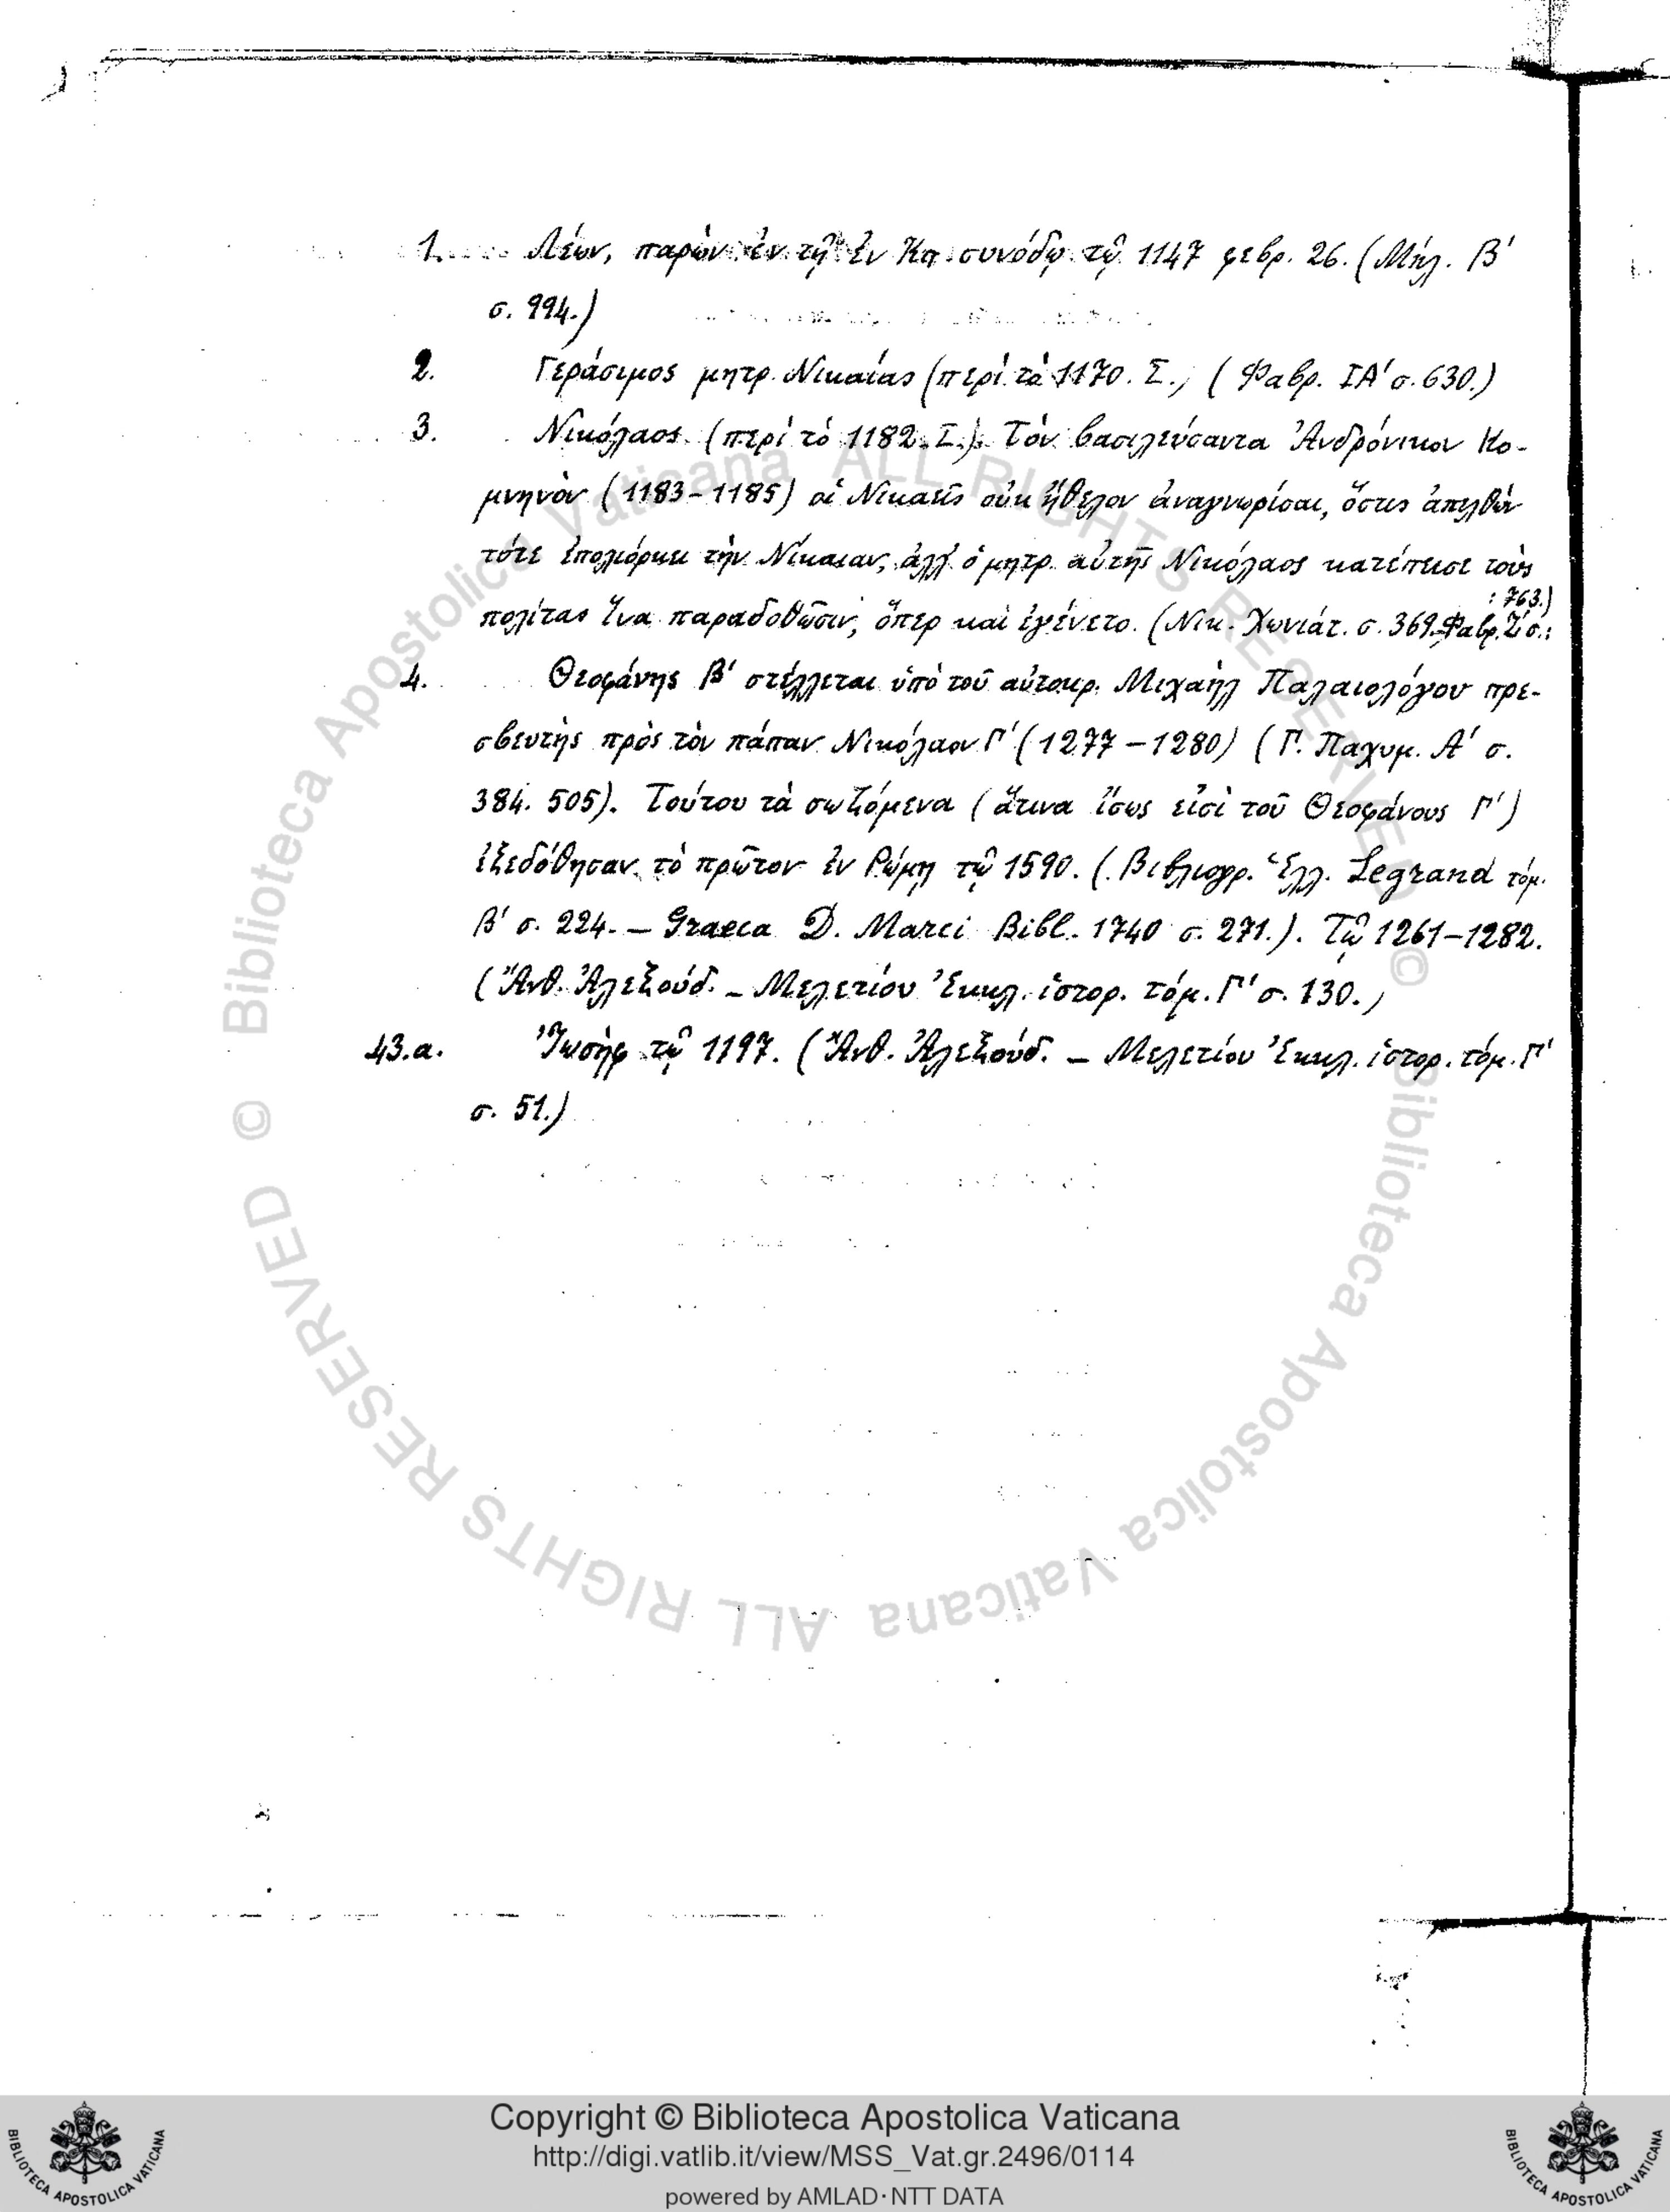 1. Λέων, παρὼν ἐν τῇ ἐν Κπ. συνόδῳ τῷ 1147 φεβρ. 26. (Μήλ. Β'
σ. 994.)
2. Γεράσιμος μητρ. Νικαίας (περὶ τὰ 1170. Σ.) (Φαβρ. ΙΑ' σ. 630.)
3. Νικόλαος (περὶ τὸ 1182. Σ.). Τὸν βασιλεύσαντα Ἀνδρόνικον Κο-
μνηνὸν (1183-1185) οἱ Νικαεῖς οὐκ ἤθελον ἀναγνωρίσαι, ὅστις ἀπελθὼν
τότε ἐπολιόρκει τὴν Νίκαιαν, ἀλλ' ὁ μητρ. αὐτῆς Νικόλαος κατέπεισε τοὺς
πολίτας ἵνα παραδοθῶσιν, ὅπερ καὶ ἐγένετο. (Νικ. Χωνιάτ. σ. 369. Φαβρ. Ζ' σ.:
: 763.)
4. Θεοφάνης Β' στέλλεται ὑπὸ τοῦ αὐτοκρ. Μιχαὴλ Παλαιολόγου πρε-
σβευτὴς πρὸς τὸν πάπαν Νικόλαον Γ' (1277-1280) (Γ. Παχυμ. Α' σ.
384. 505). Τούτου τὰ σωζόμενα (ἅτινα ἴσως εἰσὶ τοῦ Θεοφάνους Γ')
ἐξεδόθησαν τὸ πρῶτον ἐν Ρώμῃ τῷ 1590. (Βιβλιογρ. Ἑλλ. Legrand τόμ.
Β' σ. 224. - Graeca D. Marci Bibl. 1740 σ. 271.). Τῷ 1261-1282.
(Ἄνθ. Ἀλεξούδ. - Μελετίου Ἐκκλ. ἱστορ. τόμ. Γ' σ. 130.)
43.α. Ἰωσὴφ τῷ 1197. (Ἄνθ. Ἀλεξούδ. - Μελετίου Ἐκκλ. ἱστορ. τόμ. Γ'
σ. 51.)
© Biblioteca Apostolica Vaticana ALL RIGHTS RESERVED
© Biblioteca Apostolica Vaticana ALL RIGHTS RESERVED
Copyright © Biblioteca Apostolica Vaticana
http://digi.vatlib.it/view/MSS_Vat.gr.2496/0114
powered by AMLAD·NTT DATA
BIBLIOTECA APOSTOLICA VATICANA
BIBLIOTECA APOSTOLICA VATICANA